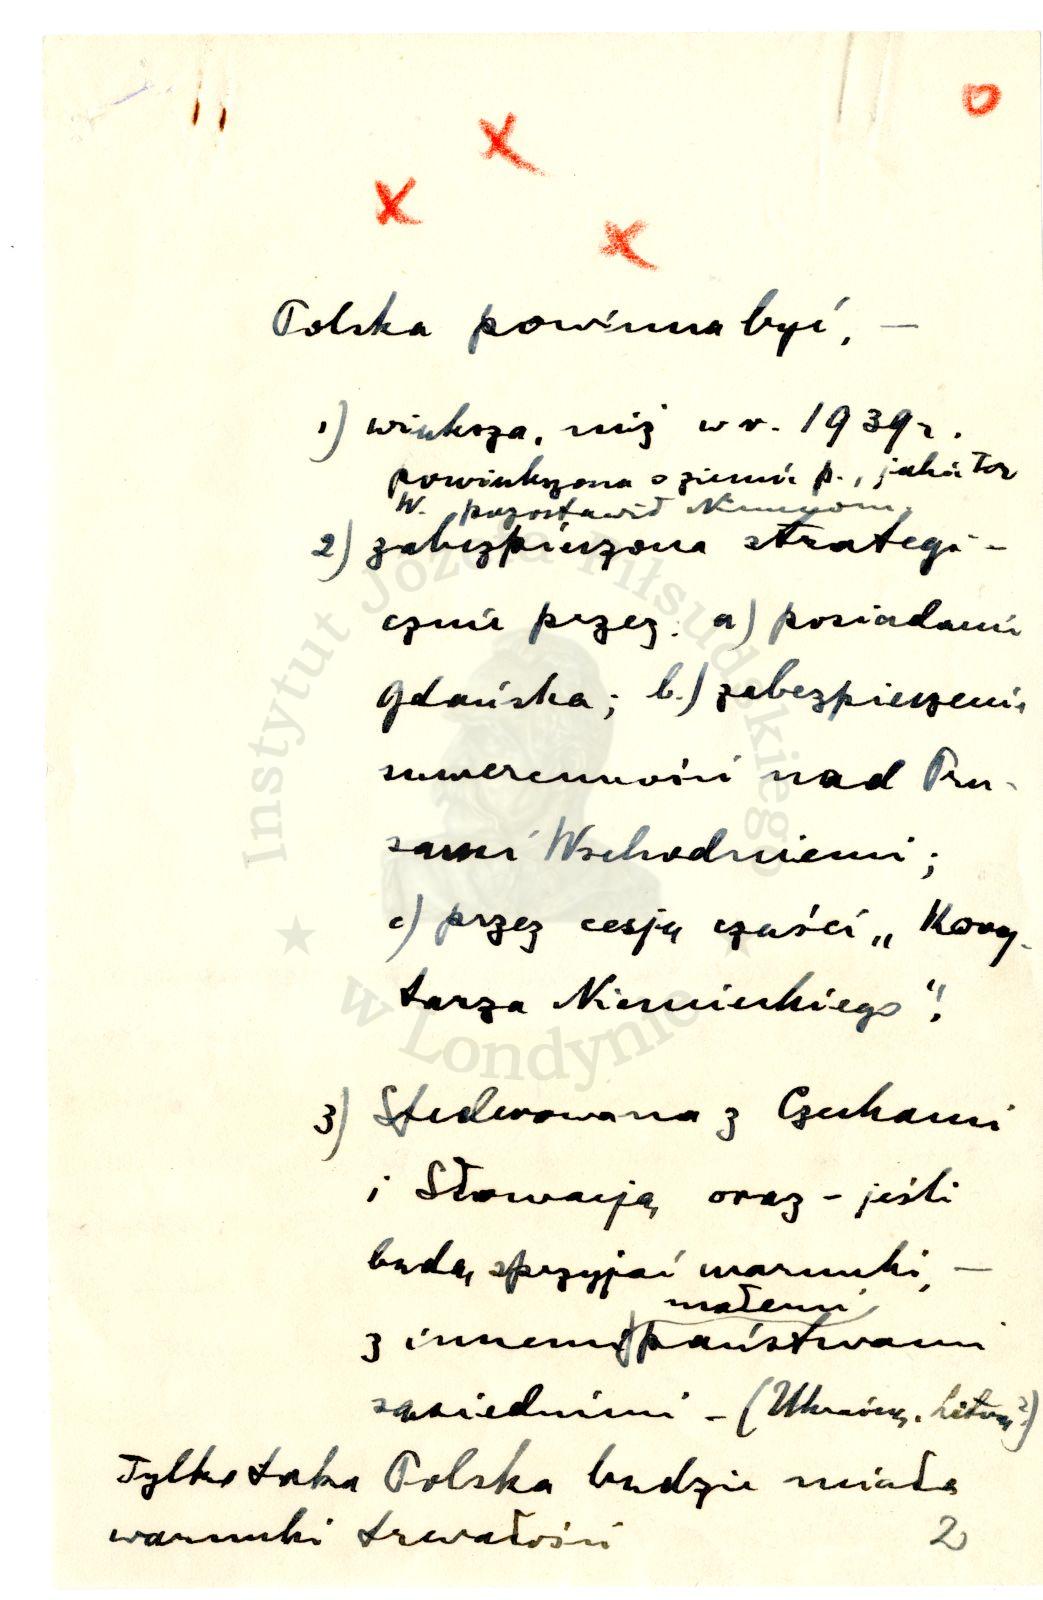 Polska powinna być, —
1) większa, niż w r. 1939 r.
powiększona o ziemię p., jaką Tr
W. pozostawił Niemcom,
2) zabezpieczona strategi-
cznie przez: a) posiadanie
Gdańska; b.) zabezpieczenie
suwerenności nad Pru-
sami Wschodniemi;
c) przez cesję części „Kory-
tarza Niemieckiego"!
3) Sfederowana z Czechami
i Słowacją oraz - jeśli
będą sprzyjać warunki, —
małemi
z innemi państwami
sąsiednimi - (Ukrainą, Litwą?)
Tylko taka Polska będzie miała
warunki trwałości
2
Instytut Józefa Piłsudskiego
w Londynie